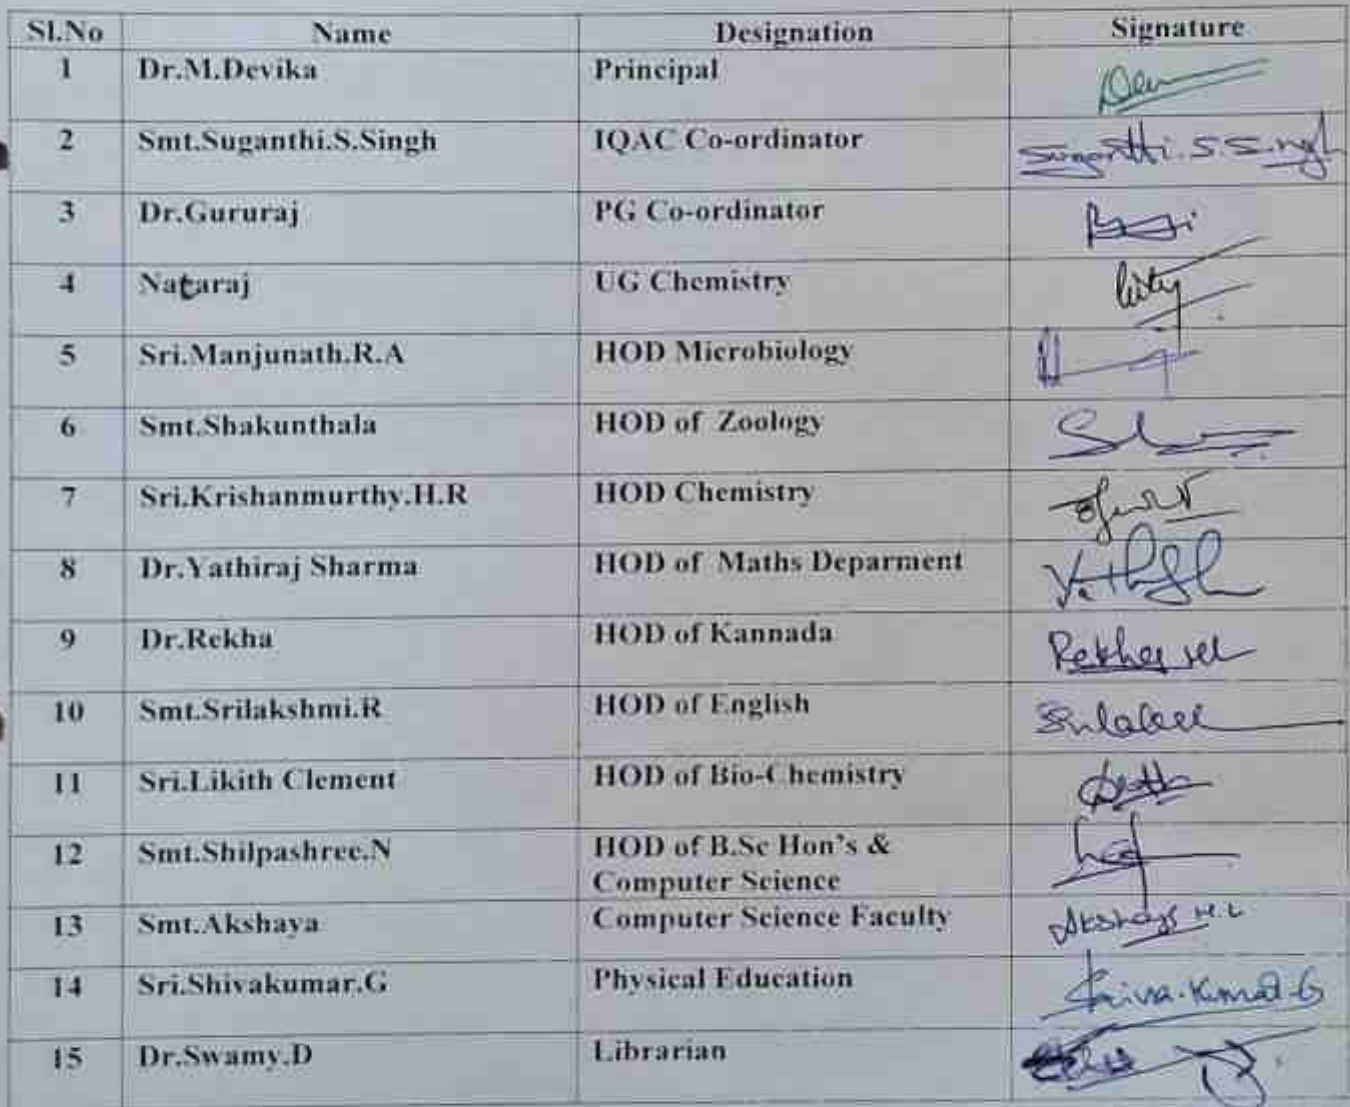 Sl.No Name Designation Signature
1 Dr.M.Devika Principal
2 Smt.Suganthi.S.Singh IQAC Co-ordinator Suganthi.S.Singh
3 Dr.Gururaj PG Co-ordinator
4 Nataraj UG Chemistry
5 Sri.Manjunath.R.A HOD Microbiology
6 Smt.Shakunthala HOD of Zoology
7 Sri.Krishanmurthy.H.R HOD Chemistry
8 Dr.Yathiraj Sharma HOD of Maths Deparment
9 Dr.Rekha HOD of Kannada
10 Smt.Srilakshmi.R HOD of English
11 Sri.Likith Clement HOD of Bio-Chemistry
12 Smt.Shilpashree.N HOD of B.Sc Hon's &
Computer Science
13 Smt.Akshaya Computer Science Faculty Akshaya M.L
14 Sri.Shivakumar.G Physical Education Shiva.Kumar.G
15 Dr.Swamy.D Librarian